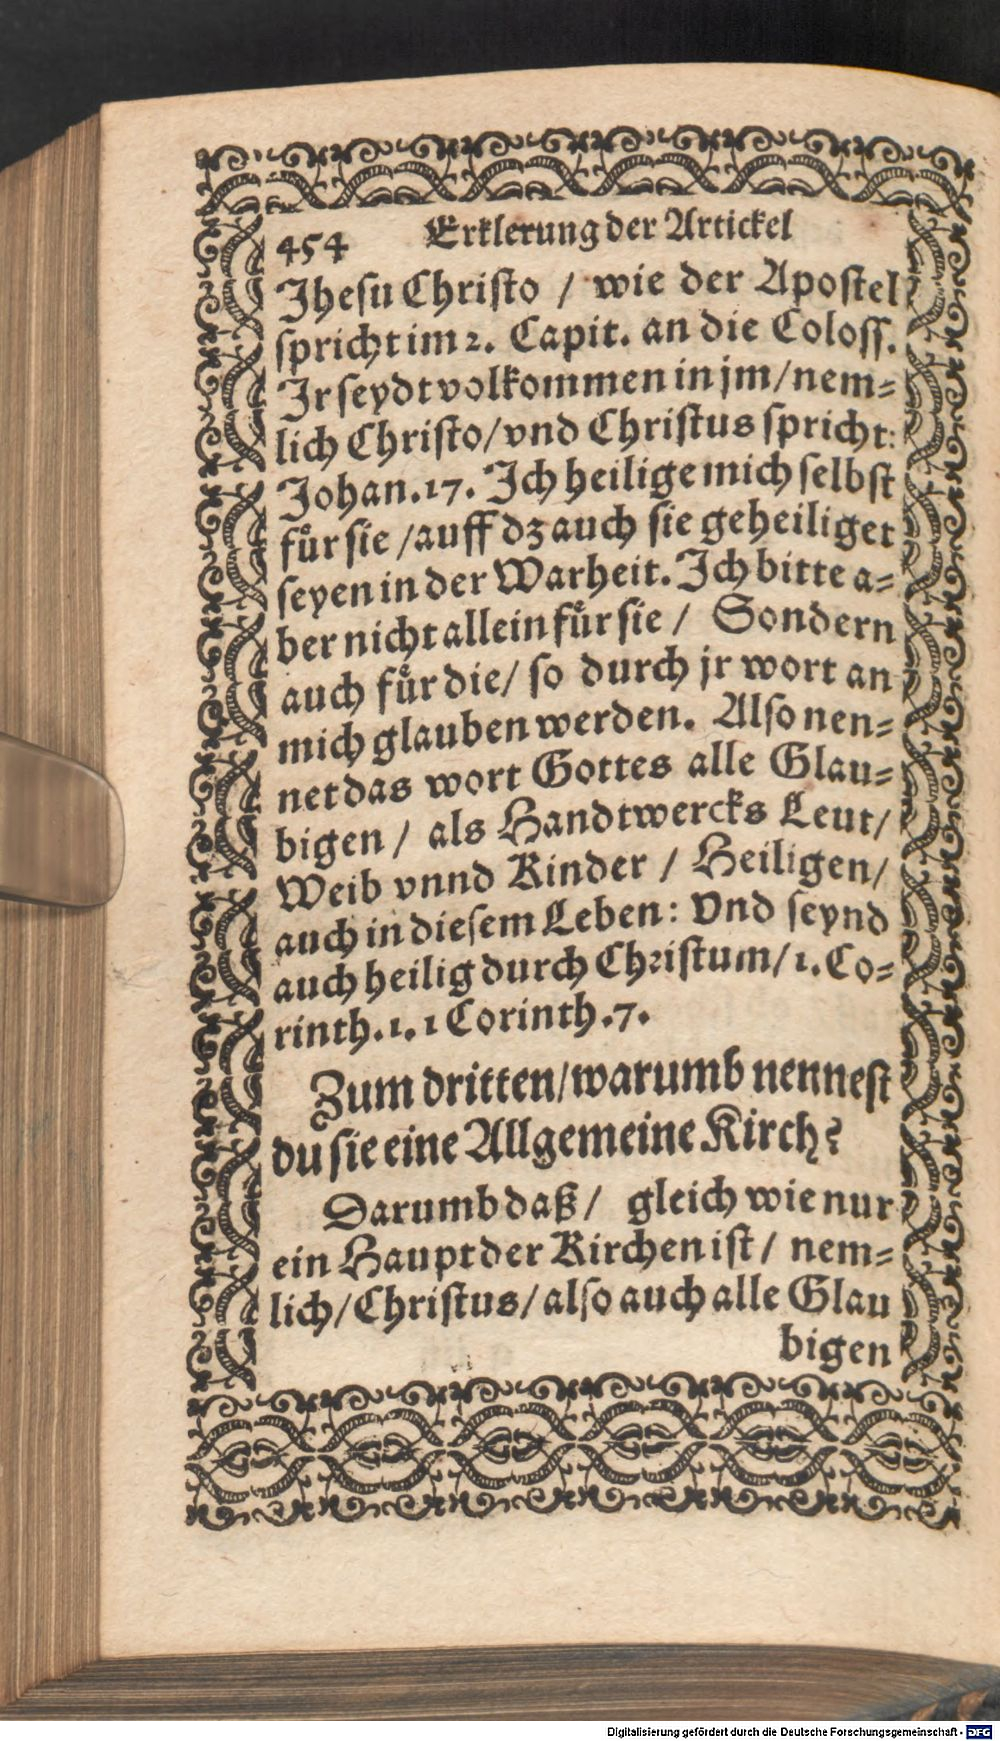 454 Erklerung der Artickel
Jhesu Christo / wie der Apostel
spricht im 2. Capit. an die Coloss.
Jr seydt volkommen in jm/ nem⸗
lich Christo/ vnd Christus spricht:
Johan. 17. Jch heilige mich selbst
fuͤr sie / auff dz auch sie geheiliget
seyen in der Warheit. Jch bitte a⸗
ber nicht allein fuͤr sie / Sondern
auch fuͤr die/ so durch jr wort an
mich glauben werden. Also nen⸗
net das wort Gottes alle Glau⸗
bigen / als Handtwercks Leut/
Weib vnnd Kinder / Heiligen/
auch in diesem Leben: Vnd seynd
auch heilig durch Christum/ 1. Co⸗
rinth. 1. 1 Corinth. 7.
Zum dritten/ warumb nennest
du sie eine Allgemeine Kirch?
Darumb daß / gleich wie nur
ein Haupt der Kirchen ist / nem⸗
lich/ Christus/ also auch alle Glau
bigen
Digitalisierung gefördert durch die Deutsche Forschungsgemeinschaft - DFG